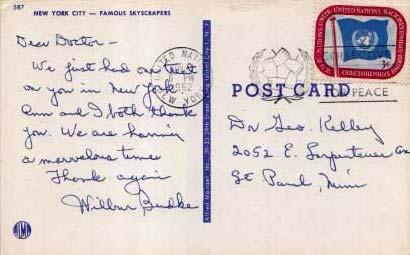 587
NEW YORK CITY — FAMOUS SKYSCRAPERS
Dear Doctor—
We just had our treat
on you in New York
Ann and I both thank
you. We are having
a marvelous time
Thank again
Wilbur Budke
1952
NEW YORK
UNITED NATIONS
3¢
POST CARD
PEACE
Dr Geo. Kelley
2052 E. Sargent Ave
St Paul, Minn